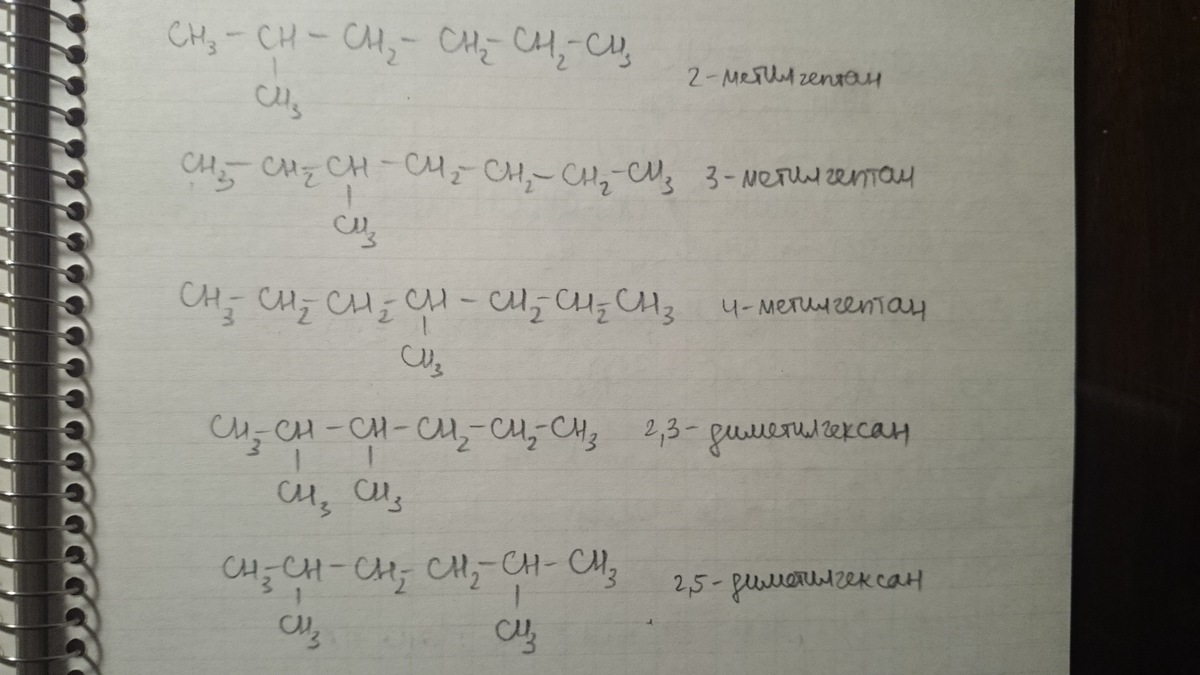 CH₃ – CH – CH₂ – CH₂ – CH₂ – CH₃
CH₃
2-метилгептан
CH₃ – CH₂ – CH – CH₂ – CH₂ – CH₂ – CH₃ 3-метилгептан
CH₃
CH₃ – CH₂ – CH₂ – CH – CH₂ – CH₂ – CH₃ 4-метилгептан
CH₃
CH₃ – CH – CH – CH₂ – CH₂ – CH₃ 2,3-диметилгексан
CH₃ CH₃
CH₃ – CH – CH₂ – CH₂ – CH – CH₃ 2,5-диметилгексан
CH₃ CH₃